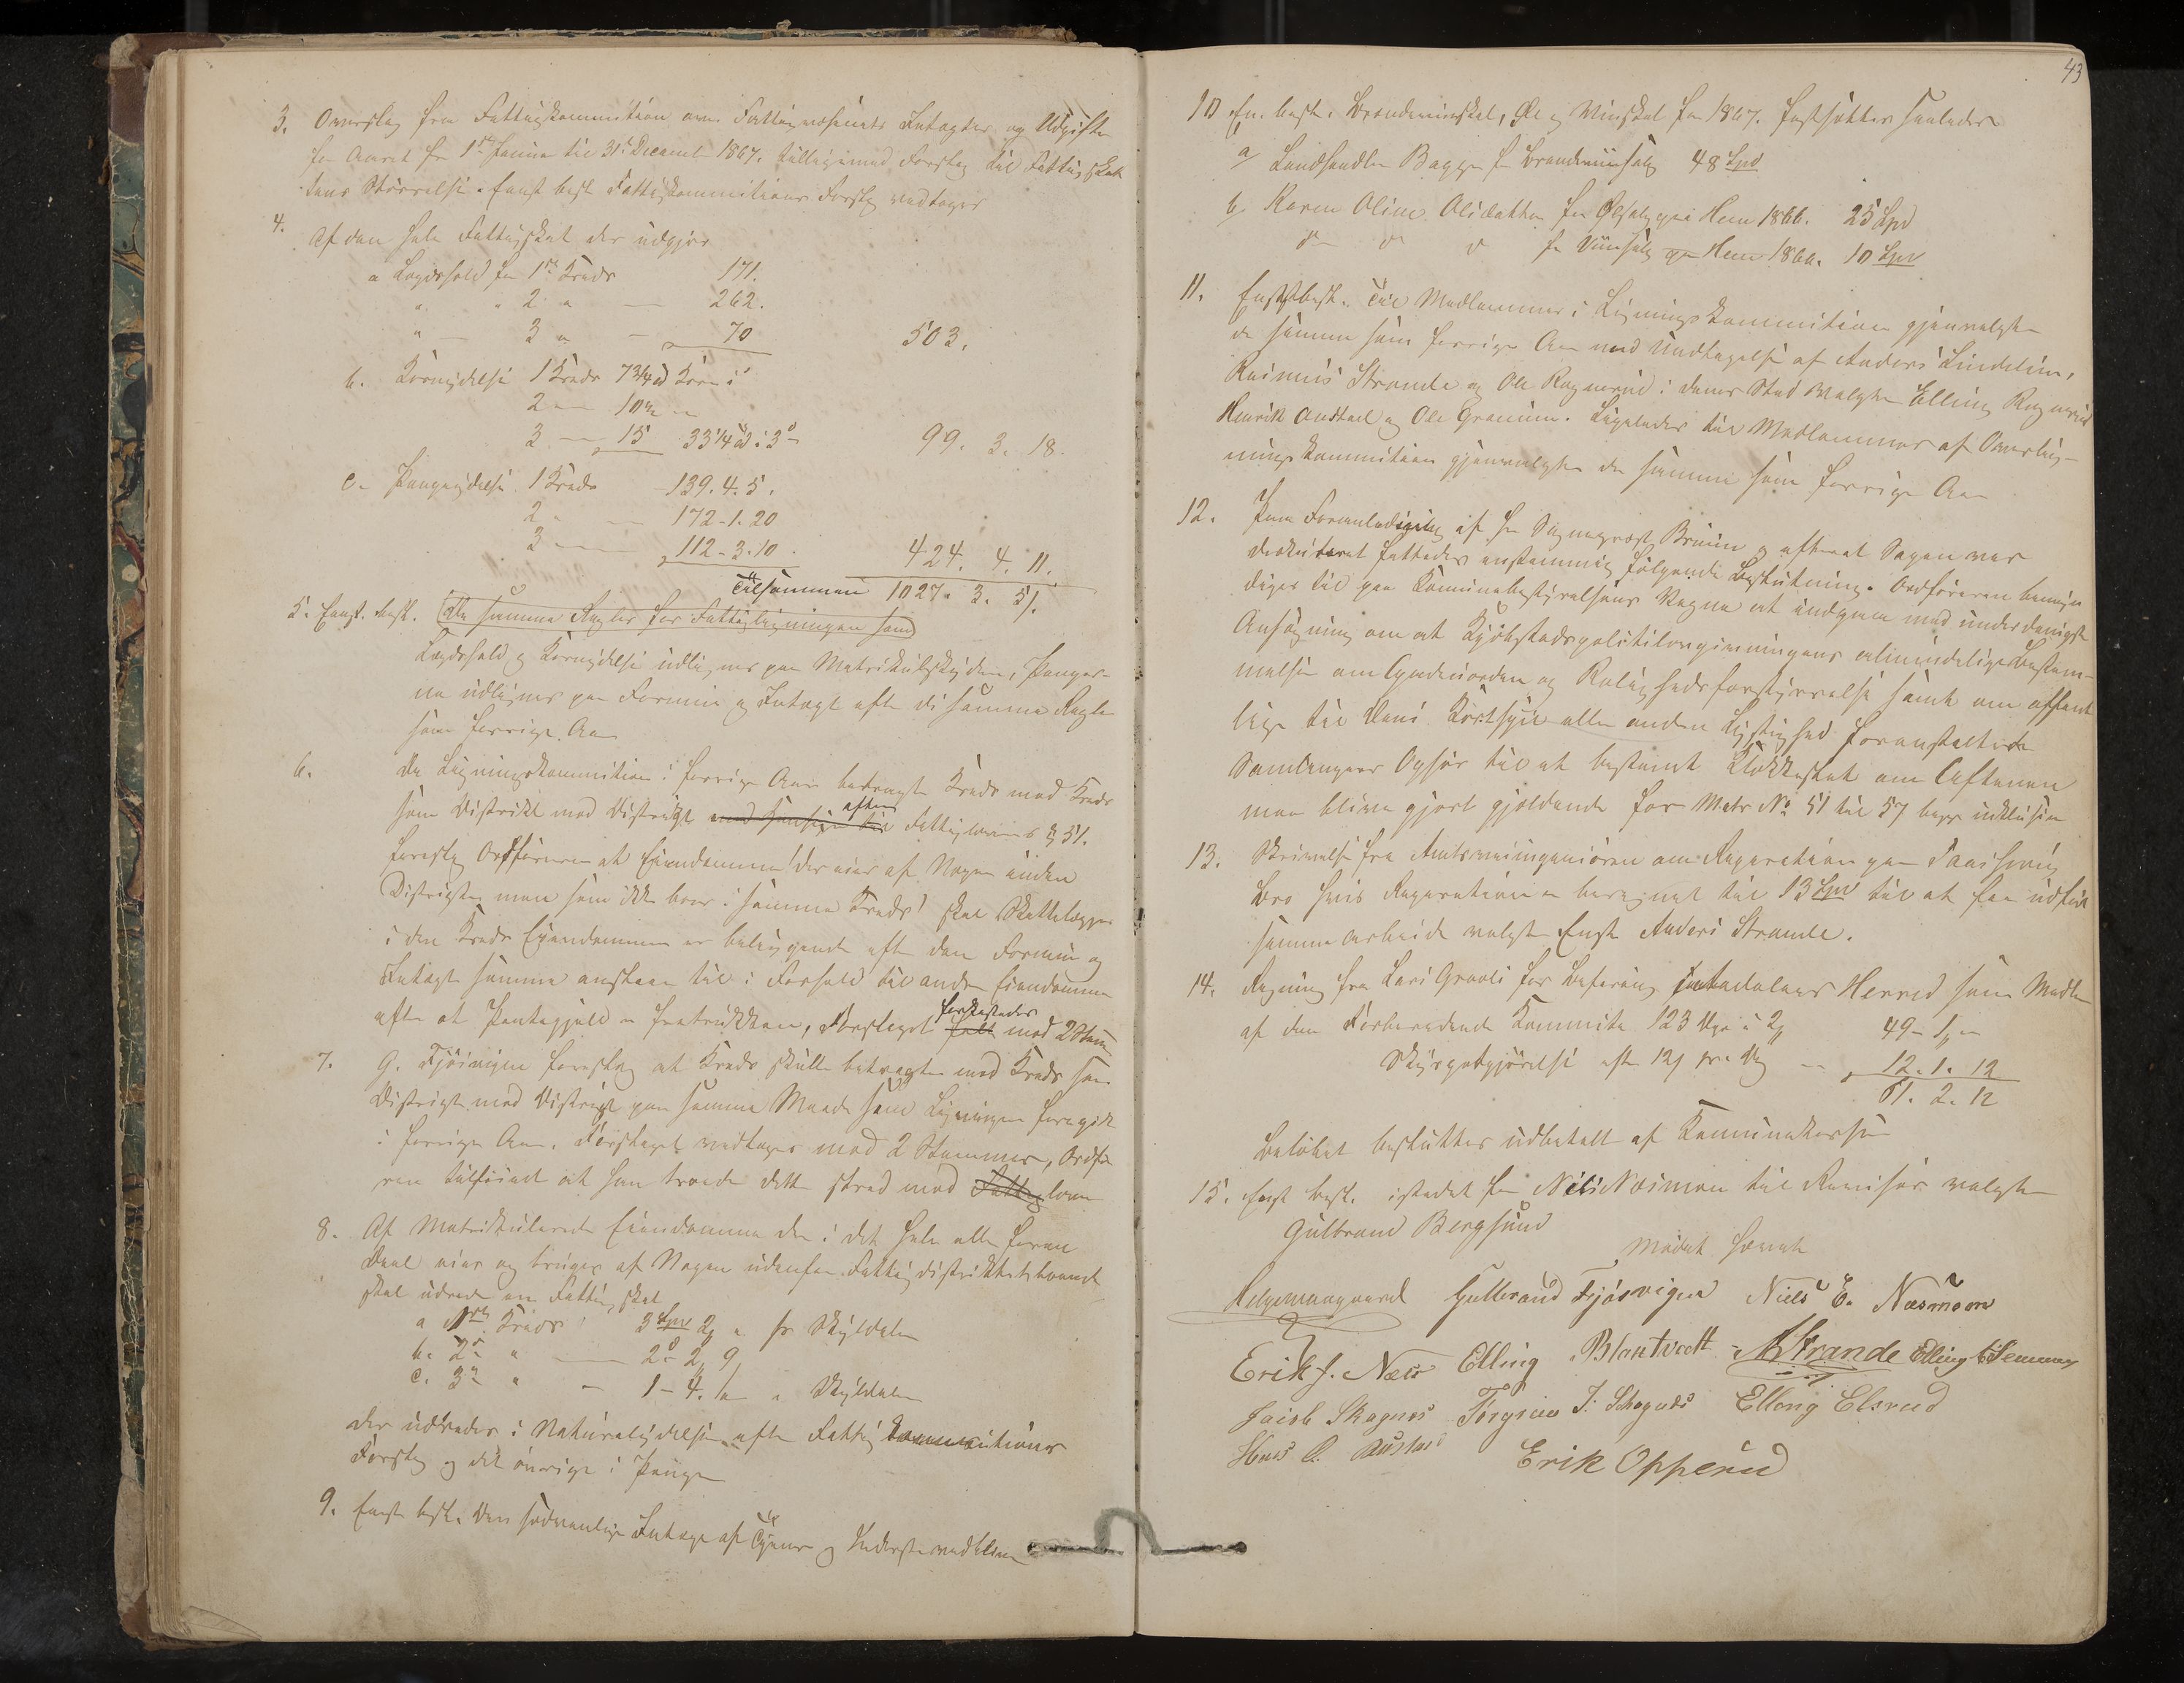 3. Overslag fra Fattigkommission over Fattigvæsenets Indtægter og Udgifter
for Aaret fra 1ste Januar til 31te December 1867. tilligemed Forslag til Fattigskat
tens Størrelse. Enst. besl. Fattigkommissionens Forslag vedtages
4.
Af den hele Fattigskat der udgjør
a Lægdshold for 1ste Kreds 171.
" " 2 " — 262.
" — 3 " — 70 503.
b. Kornydelse 1 Kreds 7 3/4 Korn i
2 — 10 1/2 —
3 — 15 33 1/4 3 99. 3. 18.
c. Pengeydelse 1 Kreds - 139. 4. 5.
2 — 172 - 1. 20
3 — 112 - 3. 10. 424. 4. 11.
Tilsammen 1027. 3. 5.
5. Enst. besl. De samme Regler for Fattigligningen som
Lægdshold og Kornydelse udlignes paa Matrikulskylden, Penge-
ne udlignes paa Formue og Indtægt efter de samme Regler
som forrige Aar
6. Da Ligningskommission i forrige Aar betragte Kreds mod Kreds
som Distrikt mod Distrikt med Hensyn til efter Fattiglovens § 51.
foreslog Ordføreren at Eiendomme der eies af Nogen inden
Distriktet men som ikke boer i samme Kreds skal Skattelægges
i den Kreds Eiendommen er beliggende efter den Formue og
Indtægt samme ansees til i Forhold til andre Eiendomme
efter at Pantegjæld er fratrukken, Forslaget faldt forkastedes mod 2 Stem
7. G. Fjøsvigen foreslog at Kreds skulle betragtes mod Kreds som
Distrikt mod Distrikt paa samme Maade som Ligningen foregik
i forrige Aar. Forslaget vedtages med 2 Stemmer, Ordfø
ren tilføiede at han troede dette stred mod Fattig loven
8. Af Matrikulerede Eiendomme der i det hele eller foren
Deel eies og bruges af Nogen udenfor Fattigdistriktet boende
skal udredes en Fattigskat
a 1ste Kreds 3 Spd 2 " pr Skylddaler
b. 2 " — 2 - 2, 9,
c. 3 " — 1 - 4. " " Skylddaler
der udredes i Naturalydelse efter Fattigkommissionens
Forslag og det øvrige i Penge
9. Enst. besl. Den sædvanlige Indtage af Tjenere og Inderster vedbliver
43
10 En. besl. Brændeviinsskat, Øl og Vinskat for 1867. fastsættes saaledes
a/ Landhandler Bagge for Brændeviinsalg 48 Spd
b/ Karen Oline Olsdatter for Ølsalg paa Hem 1866. 25 Spd
do do do for Viinsalg paa Hem 1866. 10 Spd
11. Enst. besl. Til Medlemmer i Ligningskommission gjenvalgtes
de samme som forrige Aar med Undtagelse af Anders Lindelien,
Rasmus Strande og Ole Ragnerud i deres Sted valgtes Elling Ragnerud
Henrik Andstad og Ole Granum. Ligeledes til Medlemmer af Overlig-
ningskommission gjenvalgtes de samme som forrige Aar
12. Paa Foranledning af Hr Sogneprest Bruun og efterat Sagen var
diskuteret fattedes enstemmig følgende Beslutning. Ordføreren bemyn
diges til paa Kommunebestyrelsens Vegne at indgaa med underdanigst
Ansøgning om at Kjøbstadspolitilovgivningens almindelige Bestem-
melser om Gadeuorden og Rolighedsforstyrrelse samt om offent
lige til Dans Kortspil eller anden Lystighed foranstaltede
Samlingers Ophør til et bestemt Klokkeslet om Aftenen
maa blive gjort gjældende for Matr No 51 til 57 begge inklusive
13. Skrivelse fra Amtsveiingeniøren om Reparation paa
Bro hvis Reparation er beregnet til 13 Spd til at faa udført
samme Arbeide valgtes Enst Anders Strande.
14. Regning fra Lars Gravli for Befaring Herred som Medlem
af den Forberedende Kommite 123 Dge à 2 49 - 1 -
Skydsgodtgjørelse efter 12 pr - 12. 1. 12
61. 2. 12
Beløbet besluttes udbetalt af Kommunekassen
15. Enst besl. istedet for Niels Næsmoen til Revisor valgtes
Gulbrand Bergsund
Mødet hævet
Helgemoogaard Gulbrand Fjøsvigen Niels E. Næsmoen
Erik J. Næss Elling Blaktvedt A Strande Elling E Semmen
Jacob Skagnæs Torgrim T. Skagnæs Elling Elsrud
Hans O. Austad Erik Opperud